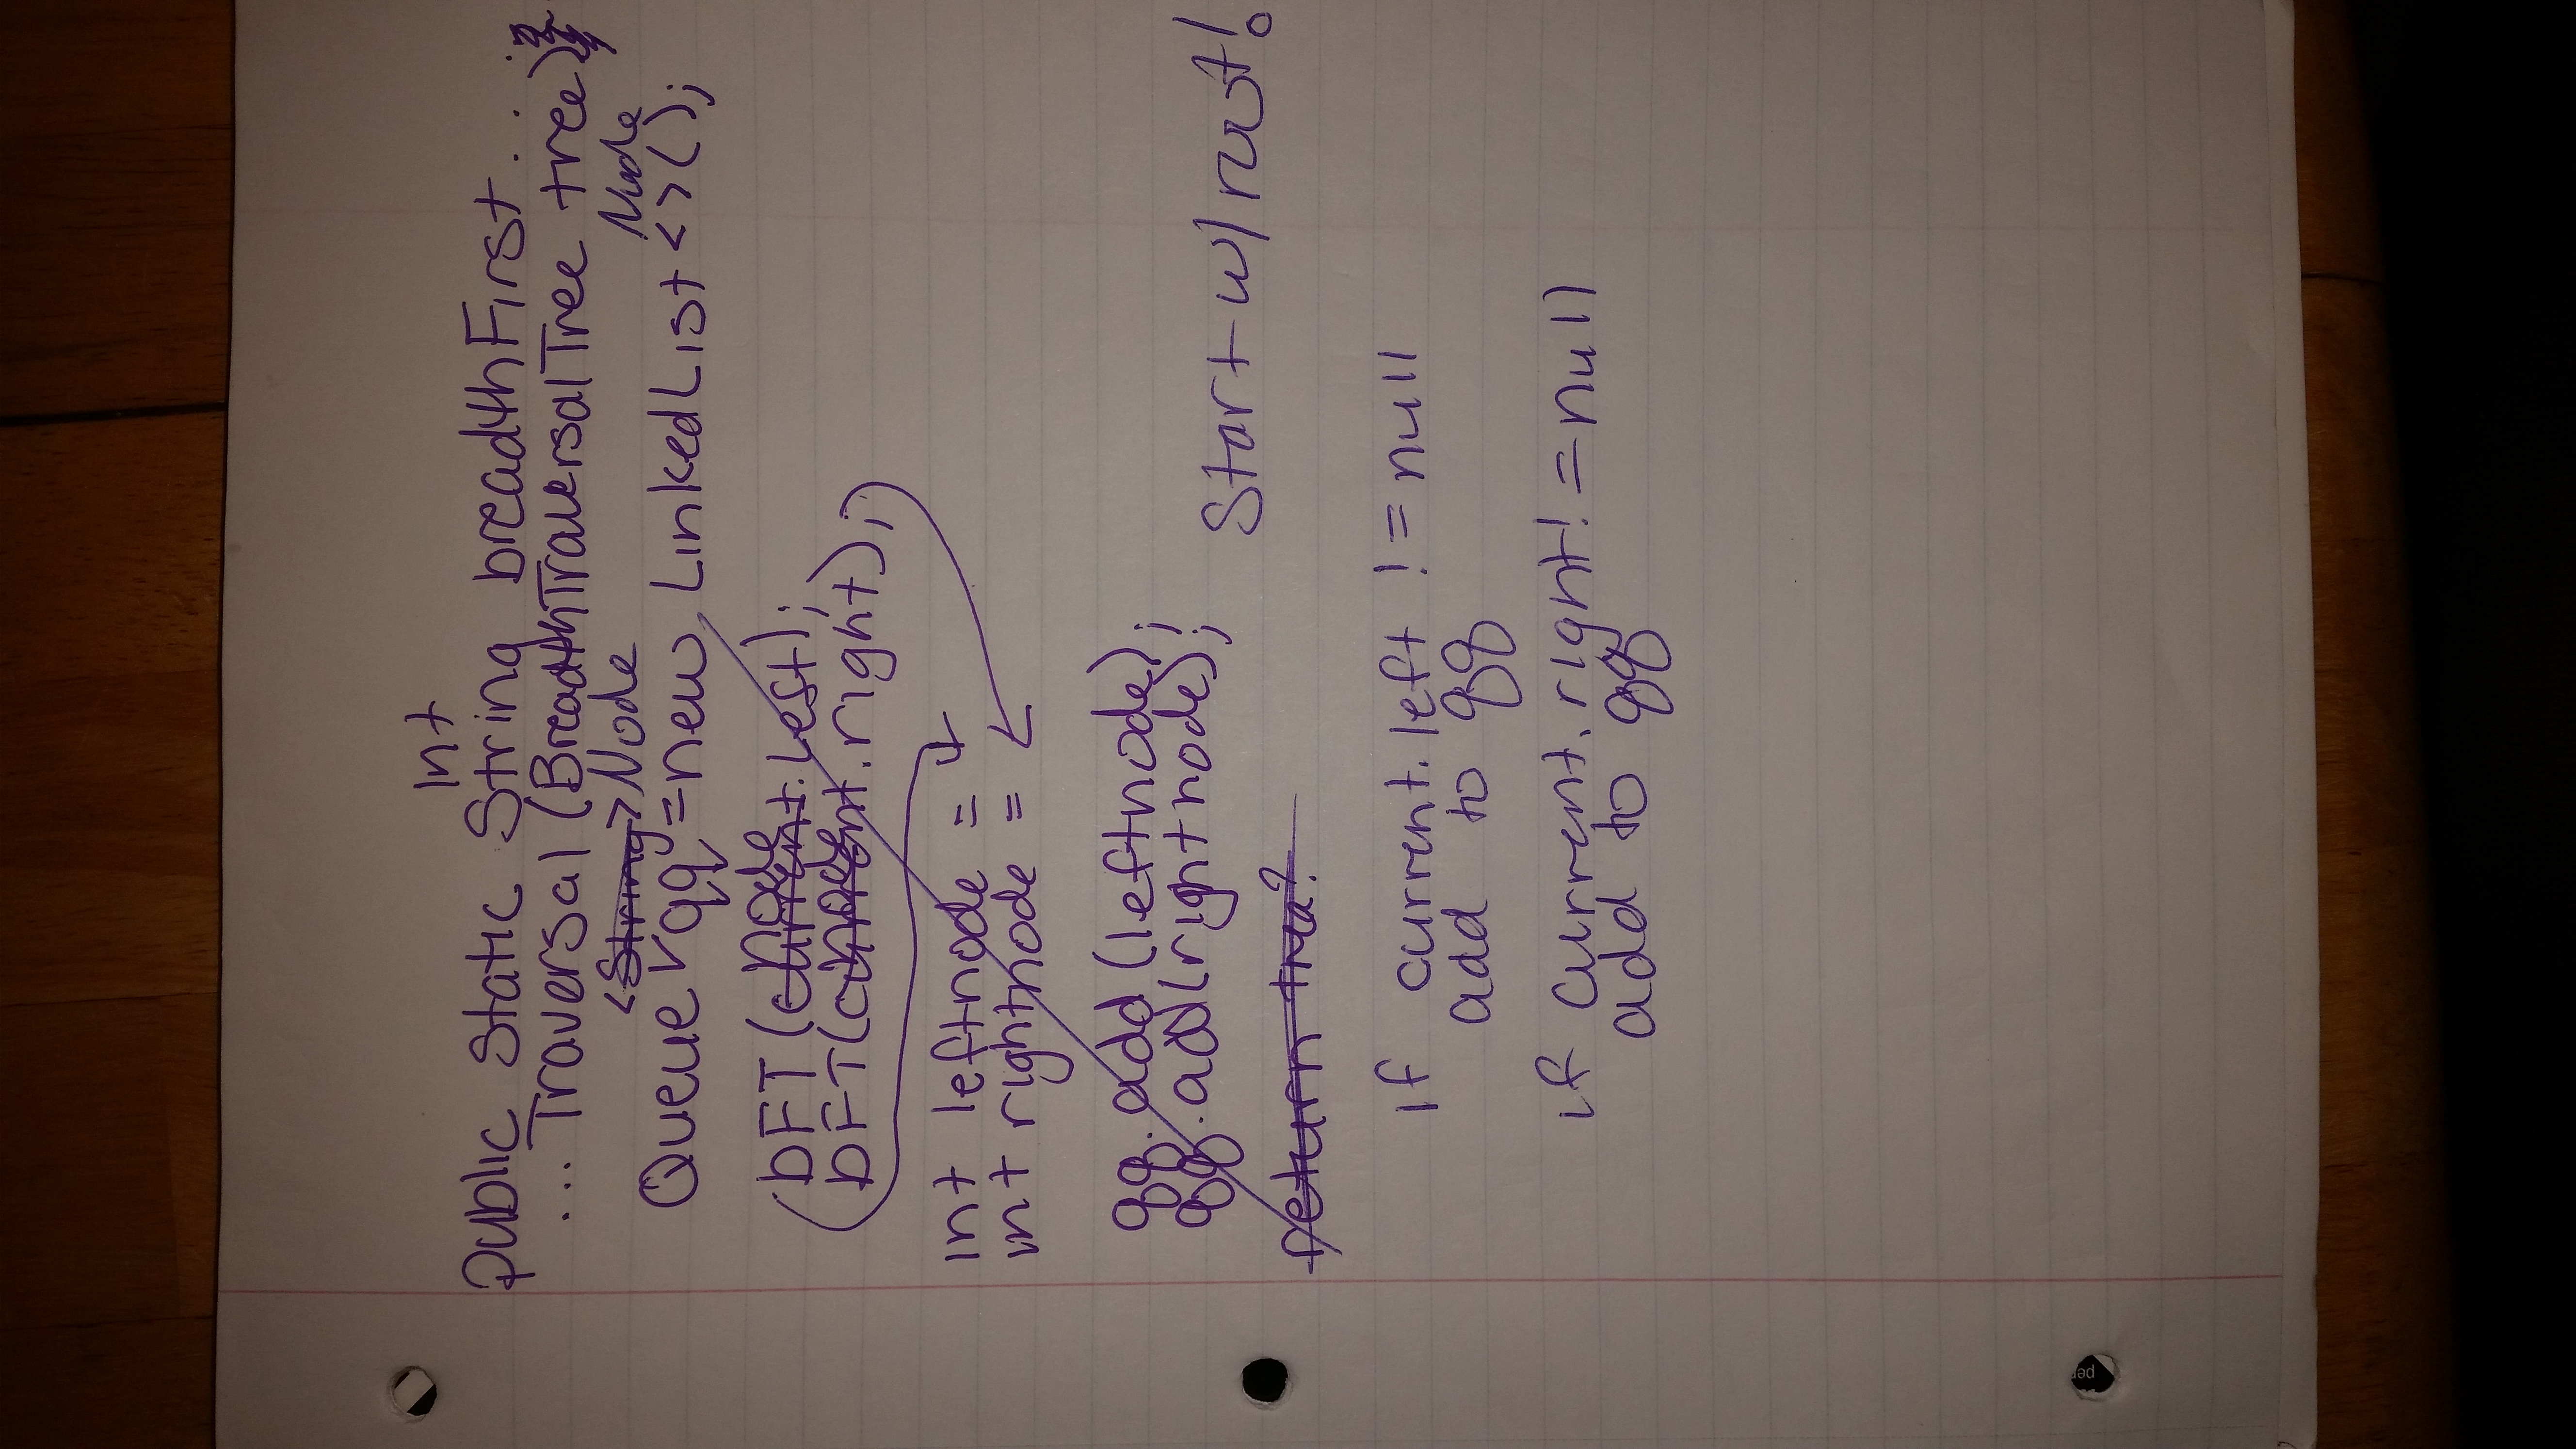 Int
public static String breadthFirst...
...Traversal (BreadthTraversalTree tree)
<String> Node
Node
Queue qq = new LinkedList <>();
node
bFT (current.left);
node
bFT(current.right);
int leftnode =
int rightnode =
qq.add(leftnode);
qq.add(rightnode);
Start w/ root!
return tree?
if current.left != null
add to qq
if current.right != null
add to qq
per